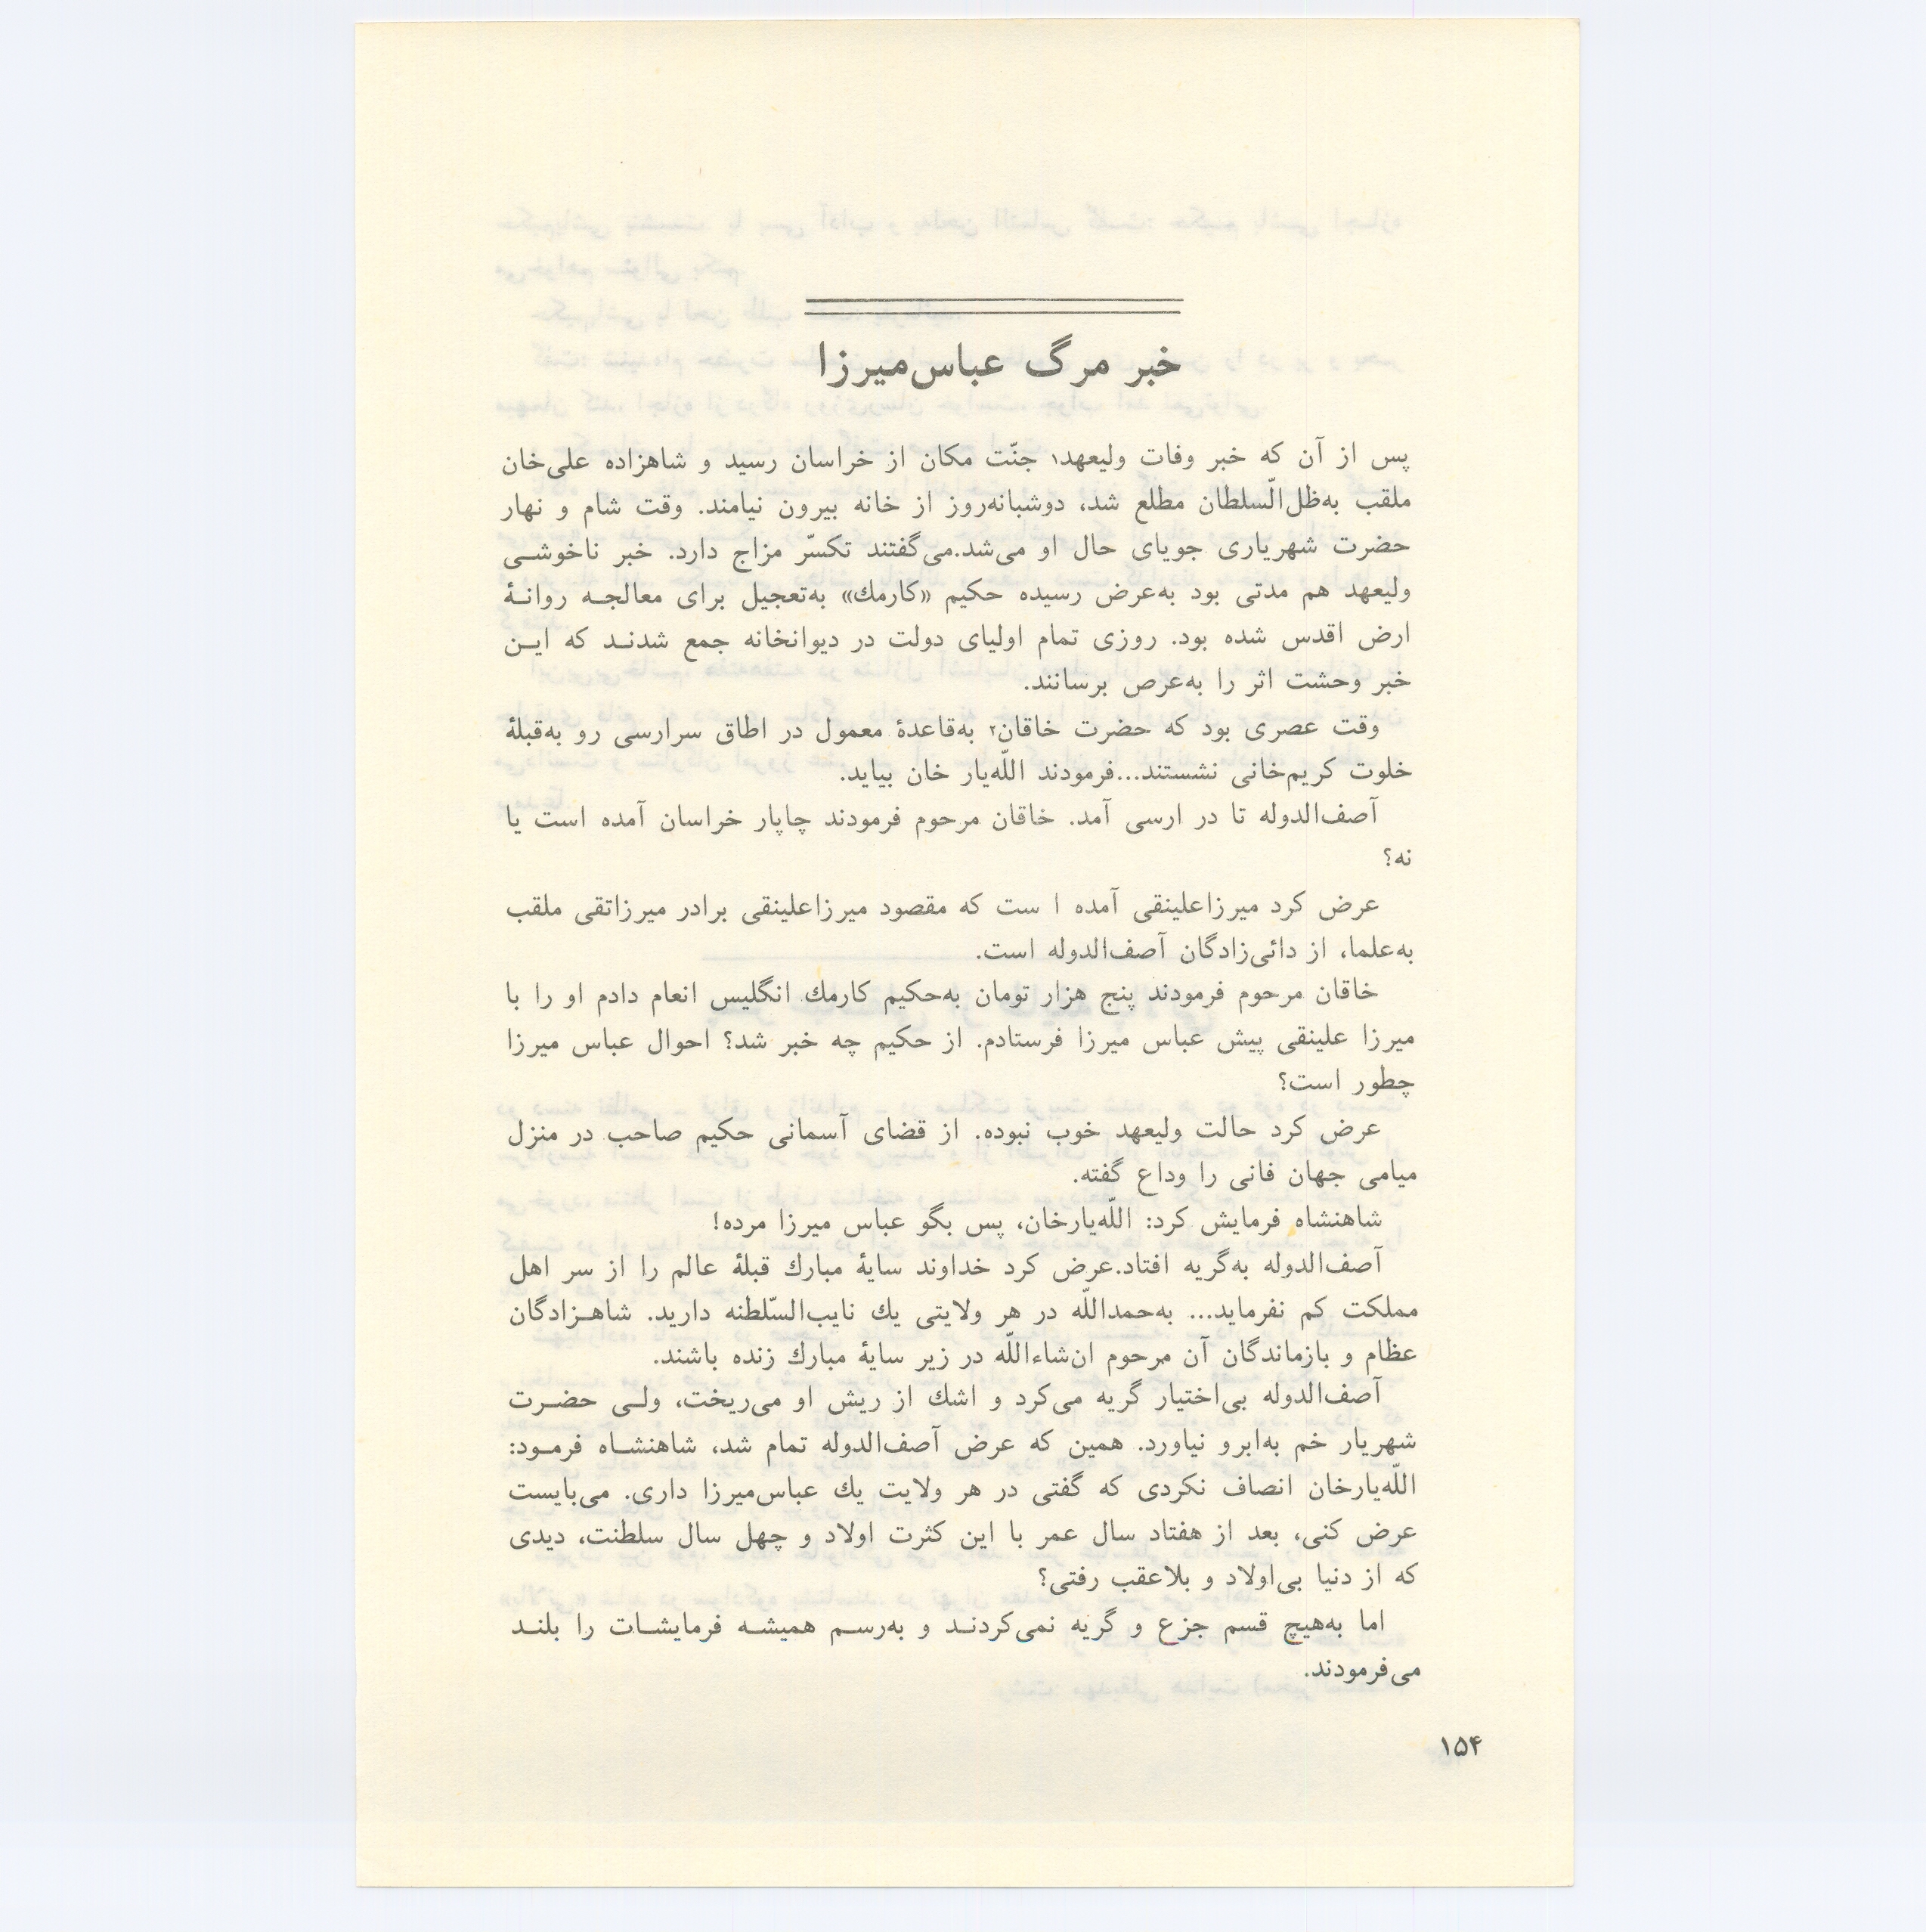 خبر مرگ عباس‌میرزا
پس از آن که خبر وفات ولیعهد۱ جنّت مکان از خراسان رسید و شاهزاده علی‌خان
ملقب به‌ظل‌الّسلطان مطلع شد، دوشبانه‌روز از خانه بیرون نیامند. وقت شام و نهار
حضرت شهریاری جویای حال او می‌شد.می‌گفتند تکسّر مزاج دارد. خبر ناخوشی
ولیعهد هم مدتی بود به‌عرض رسیده حکیم «کارمك» به‌تعجیل برای معالجه روانۀ
ارض اقدس شده بود. روزی تمام اولیای دولت در دیوانخانه جمع شدند که این
خبر وحشت اثر را به‌عرص برسانند.
وقت عصری بود که حضرت خاقان۲ به‌قاعدۀ معمول در اطاق سرارسی رو به‌قبلۀ
خلوت کریم‌خانی نشستند...فرمودند اللّه‌یار خان بیاید.
آصف‌الدوله تا در ارسی آمد. خاقان مرحوم فرمودند چاپار خراسان آمده است یا
نه؟
عرض کرد میرزاعلینقی آمده ا ست که مقصود میرزاعلینقی برادر میرزاتقی ملقب
به‌علما، از دائی‌زادگان آصف‌الدوله است.
خاقان مرحوم فرمودند پنج هزار تومان به‌حکیم کارمك انگلیس انعام دادم او را با
میرزا علینقی پیش عباس میرزا فرستادم. از حکیم چه خبر شد؟ احوال عباس میرزا
چطور است؟
عرض کرد حالت ولیعهد خوب نبوده. از قضای آسمانی حکیم صاحب در منزل
میامی جهان فانی را وداع گفته.
شاهنشاه فرمایش کرد: اللّه‌یارخان، پس بگو عباس میرزا مرده!
آصف‌الدوله به‌گریه افتاد.عرض کرد خداوند سایۀ مبارك قبلۀ عالم را از سر اهل
مملکت کم نفرماید... به‌حمداللّه در هر ولایتی یك نایب‌السّلطنه دارید. شاهزادگان
عظام و بازماندگان آن مرحوم ان‌شاءاللّه در زیر سایۀ مبارك زنده باشند.
آصف‌الدوله بی‌اختیار گریه می‌کرد و اشك از ریش او می‌ریخت، ولی حضرت
شهریار خم به‌ابرو نیاورد. همین که عرض آصف‌الدوله تمام شد، شاهنشاه فرمود:
اللّه‌یارخان انصاف نکردی که گفتی در هر ولایت یك عباس‌میرزا داری. می‌بایست
عرض کنی، بعد از هفتاد سال عمر با این کثرت اولاد و چهل سال سلطنت، دیدی
که از دنیا بی‌اولاد و بلاعقب رفتی؟
اما به‌هیچ قسم جزع و گریه نمی‌کردند و به‌رسم همیشه فرمایشات را بلند
می‌فرمودند.
۱۵۴